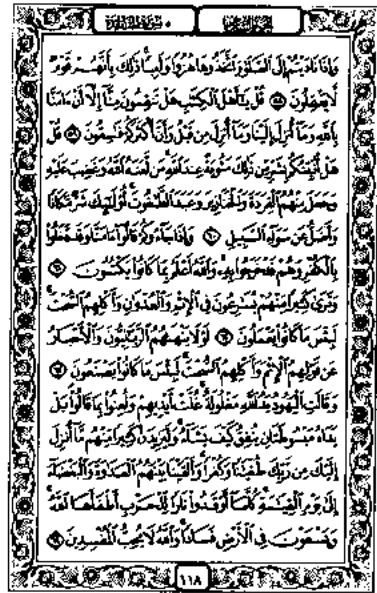 الجزء السادس سورة المائدة
وَإِذَا نَادَيْتُمْ إِلَى الصَّلَوٰةِ اتَّخَذُوهَا هُزُوًا وَلَعِبًا ذَٰلِكَ بِأَنَّهُمْ قَوْمٌ
لَّا يَعْقِلُونَ ۝٥٨ قُلْ يَٰٓأَهْلَ الْكِتَٰبِ هَلْ تَنقِمُونَ مِنَّآ إِلَّآ أَنْ ءَامَنَّا
بِاللَّهِ وَمَآ أُنزِلَ إِلَيْنَا وَمَآ أُنزِلَ مِن قَبْلُ وَأَنَّ أَكْثَرَكُمْ فَٰسِقُونَ ۝٥٩ قُلْ
هَلْ أُنَبِّئُكُم بِشَرٍّ مِّن ذَٰلِكَ مَثُوبَةً عِندَ اللَّهِ مَن لَّعَنَهُ اللَّهُ وَغَضِبَ عَلَيْهِ
وَجَعَلَ مِنْهُمُ الْقِرَدَةَ وَالْخَنَازِيرَ وَعَبَدَ الطَّٰغُوتَ أُو۟لَٰٓئِكَ شَرٌّ مَّكَانًا
وَأَضَلُّ عَن سَوَآءِ السَّبِيلِ ۝٦٠ وَإِذَا جَآءُوكُمْ قَالُوٓا۟ ءَامَنَّا وَقَد دَّخَلُوا۟
بِالْكُفْرِ وَهُمْ قَدْ خَرَجُوا۟ بِهِۦ وَاللَّهُ أَعْلَمُ بِمَا كَانُوا۟ يَكْتُمُونَ ۝٦١
وَتَرَىٰ كَثِيرًا مِّنْهُمْ يُسَٰرِعُونَ فِي الْإِثْمِ وَالْعُدْوَٰنِ وَأَكْلِهِمُ السُّحْتَ
لَبِئْسَ مَا كَانُوا۟ يَعْمَلُونَ ۝٦٢ لَوْلَا يَنْهَىٰهُمُ الرَّبَّٰنِيُّونَ وَالْأَحْبَارُ
عَن قَوْلِهِمُ الْإِثْمَ وَأَكْلِهِمُ السُّحْتَ لَبِئْسَ مَا كَانُوا۟ يَصْنَعُونَ ۝٦٣
وَقَالَتِ الْيَهُودُ يَدُ اللَّهِ مَغْلُولَةٌ غُلَّتْ أَيْدِيهِمْ وَلُعِنُوا۟ بِمَا قَالُوا۟ بَلْ
يَدَاهُ مَبْسُوطَتَانِ يُنفِقُ كَيْفَ يَشَآءُ وَلَيَزِيدَنَّ كَثِيرًا مِّنْهُم مَّآ أُنزِلَ
إِلَيْكَ مِن رَّبِّكَ طُغْيَٰنًا وَكُفْرًا وَأَلْقَيْنَا بَيْنَهُمُ الْعَدَٰوَةَ وَالْبَغْضَآءَ
إِلَىٰ يَوْمِ الْقِيَٰمَةِ كُلَّمَآ أَوْقَدُوا۟ نَارًا لِّلْحَرْبِ أَطْفَأَهَا اللَّهُ
وَيَسْعَوْنَ فِي الْأَرْضِ فَسَادًا وَاللَّهُ لَا يُحِبُّ الْمُفْسِدِينَ ۝٦٤
١١٨